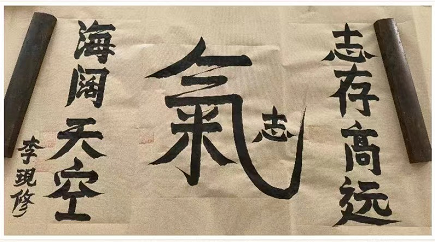 志存高远
志氣
海阔天空
李現修